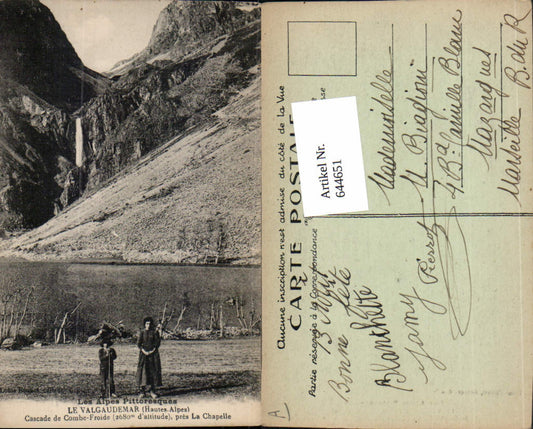 Les Alpes Pittoresques
LE VALGAUDEMAR (Hautes-Alpes)
Cascade de Combe-Froide (2680m d'altitude), près La Chapelle
Aucune inscription n'est admise du côté de la Vue
CARTE POSTALE
Partie réservée à la Correspondance
Artikel Nr.
644651
Mademoiselle
M Biagioni
Bd Camille Blanc
Mazargues
Marseille B. du R
13
Bonne fête
Blanchette
Jamy
Pierrot
A